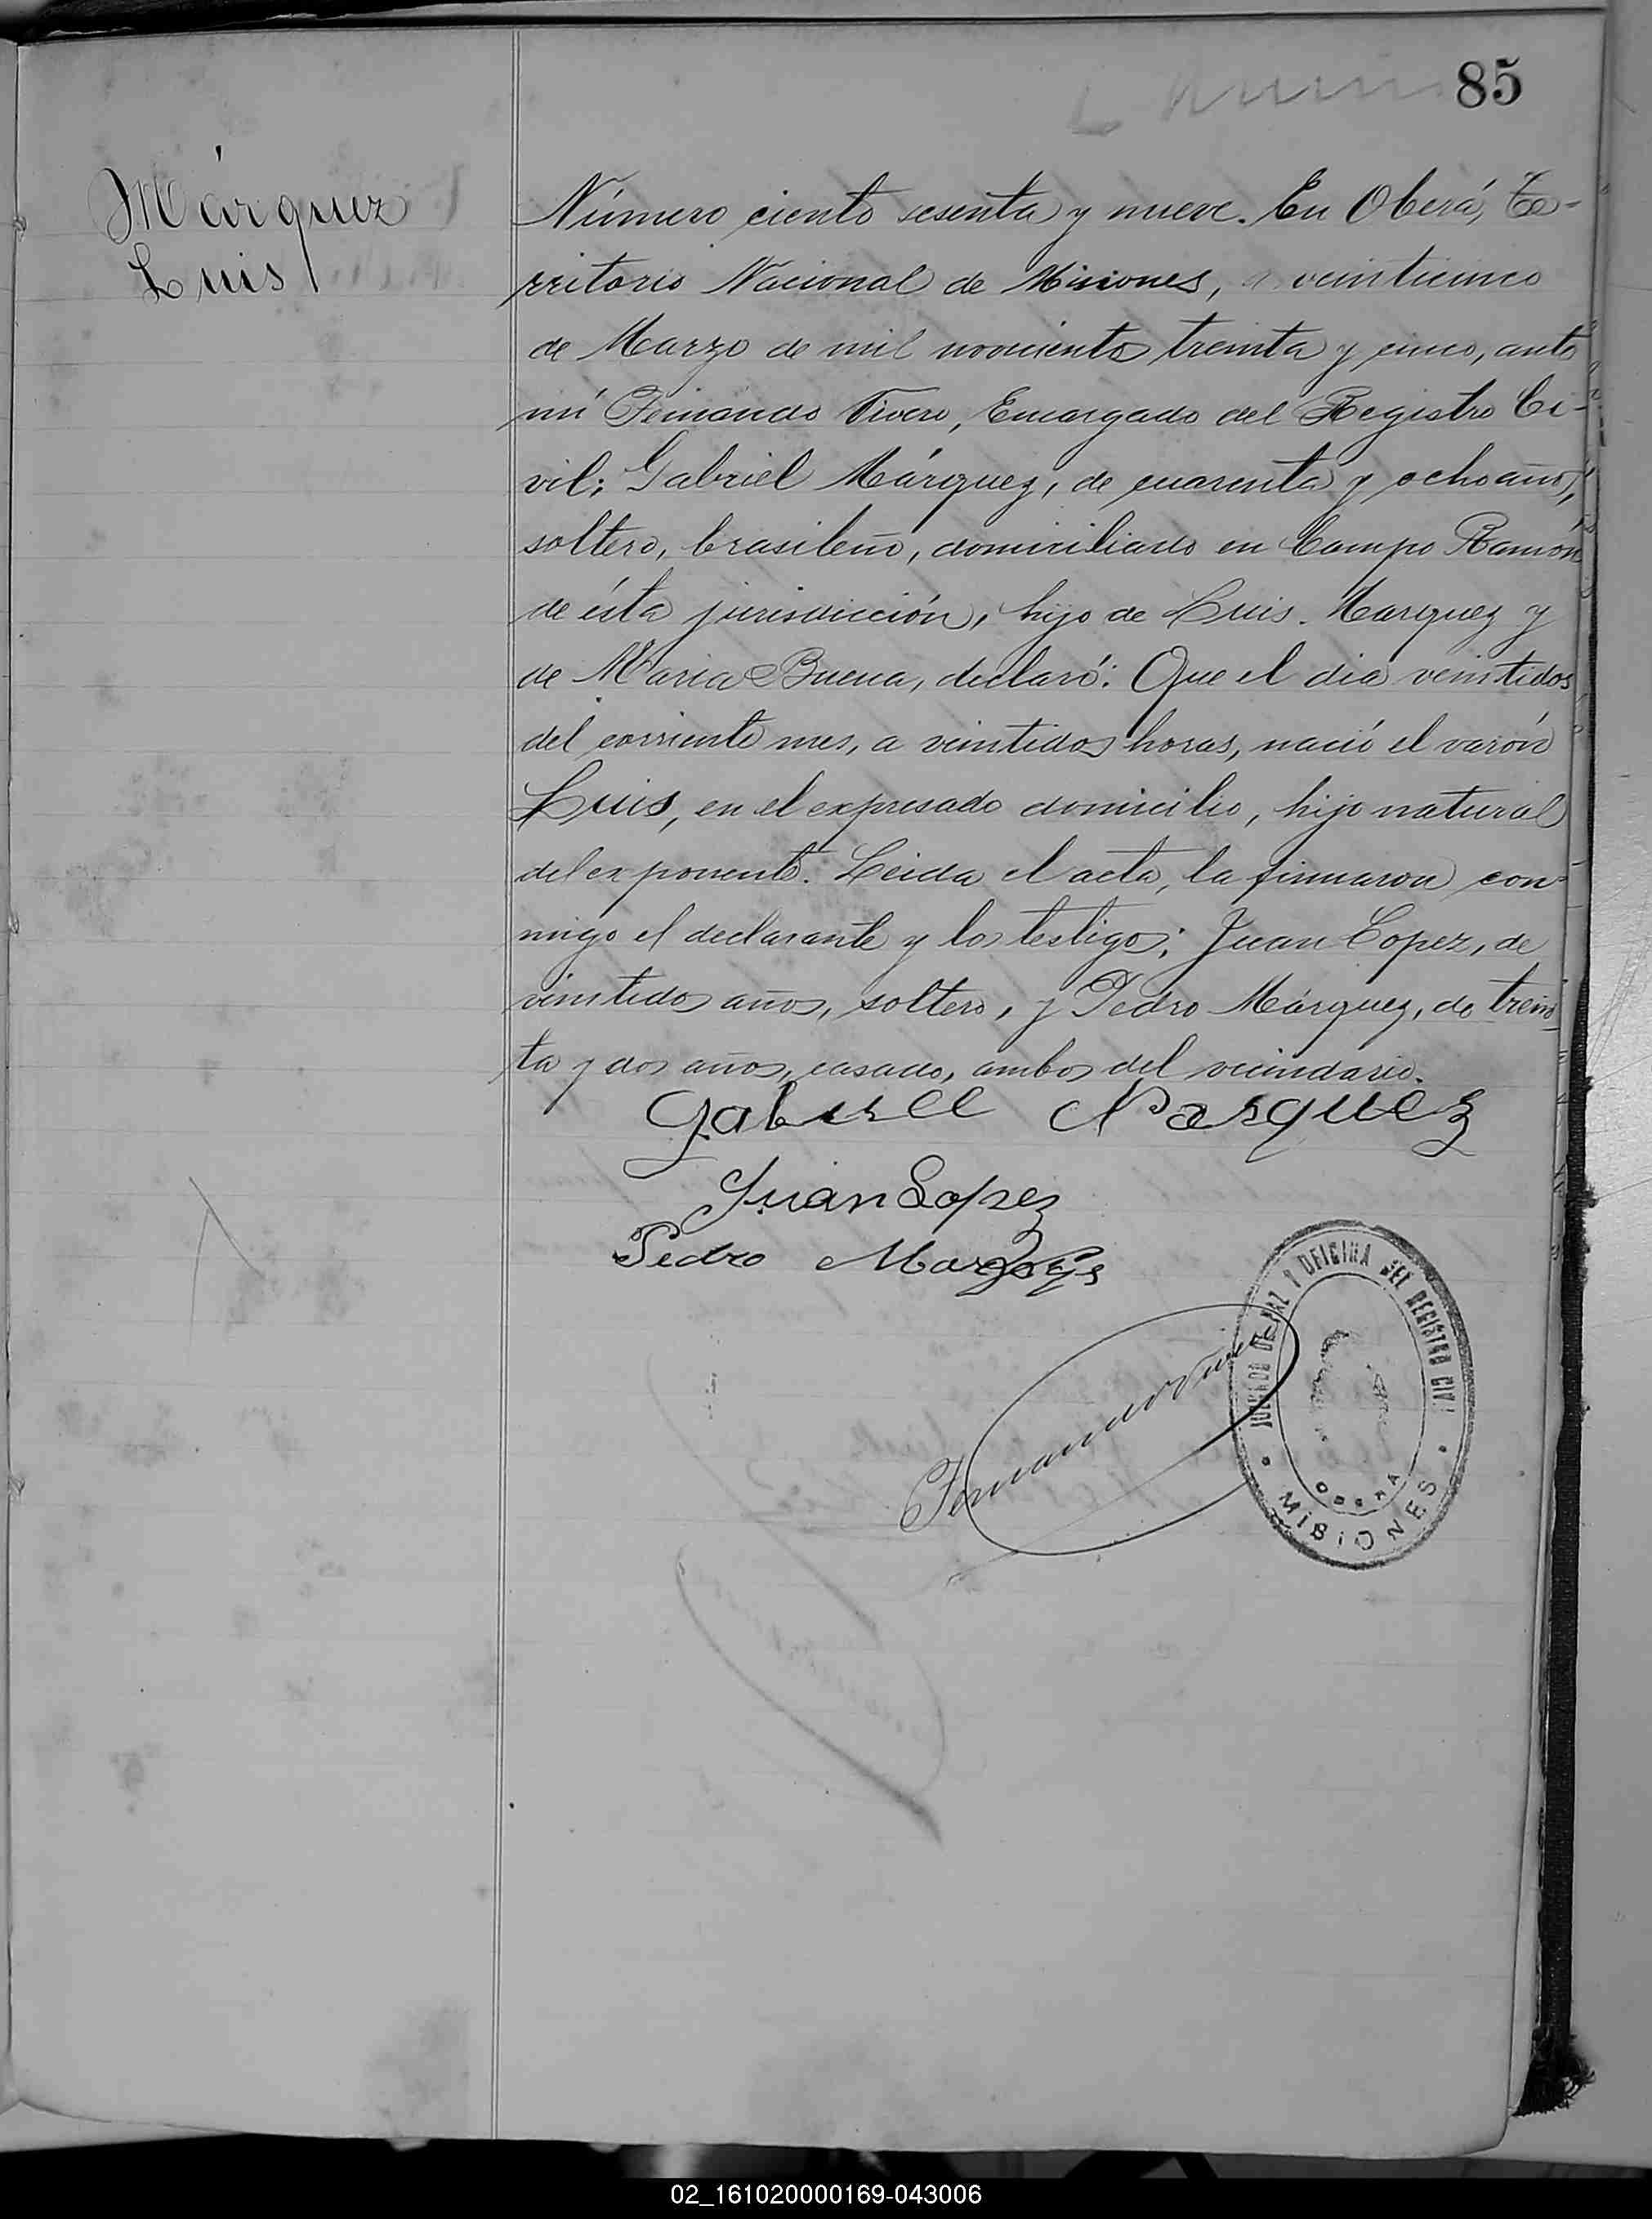 85
Márquez
Luis
Número ciento sesenta y nueve. En Oberá, Te-
rritorio Nacional de Misiones, a veinticinco
de Marzo de mil novecientos treinta y cinco, ante
mí Fernando Vivero, Encargado del Registro Ci-
vil; Gabriel Márquez, de cuarenta y ocho años,
soltero, brasileño, domiciliado en Campo Ramón
de ésta jurisdicción, hijo de Luis Marquez y
de Maria Buena, declaró: Que el dia veintidos
del corriente mes, a veintidos horas, nació el varón
Luis, en el expresado domicilio, hijo natural
del exponente. Leida el acta, la firmaron con-
migo el declarante y los testigos: Juan Lopez, de
veintidos años, soltero, y Pedro Márquez, de trein-
ta y dos años, casado, ambos del vecindario.
Gabriel Marquez
Juan Lopez
Pedro
JUZGADO DE PAZ Y OFICINA DEL REGISTRO CIVIL
OBERA
MISIONES
02_161020000169-043006